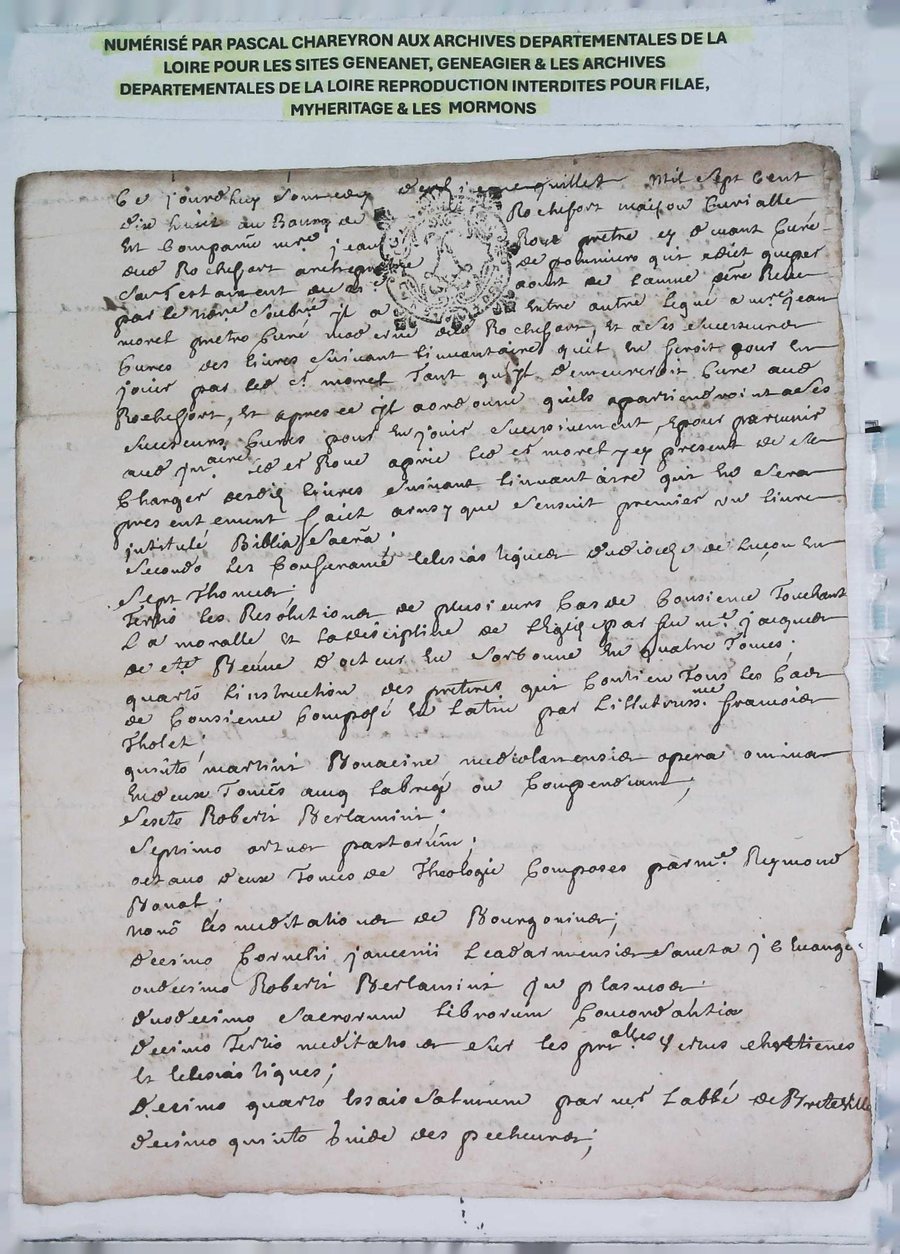 NUMÉRISÉ PAR PASCAL CHAREYRON AUX ARCHIVES DEPARTEMENTALES DE LA
LOIRE POUR LES SITES GENEANET, GENEAGIER & LES ARCHIVES
DEPARTEMENTALES DE LA LOIRE REPRODUCTION INTERDITES POUR FILAE,
MYHERITAGE & LES MORMONS
Ce jourdhuy juillet mil sept cent
dix huict au Bourg de Rochefort maison Curialle
Est Comparu mre jean Roue pretre et devant Curé
dud Rochefort archipretre de pommiers qui a dict que par
son Testament du aoust de lannée dre Receu
par le nore soubné jl a Entre autre legué a mre jean
morel pretre Curé moderne dud Rochefort, Et a ses successeurs
Cures des livres suivant linvantaire quil En feroit pour En
jouir par led sr morel Tant qujl demeureroit Curé aud
Rochefort, Et apres ce jl a ordonné quils apartiendroint a ses
successeurs Cures pour En jouir successivement, Et pour parvenir
aud jnvaire led sr Roue a prie led sr morel jcy present de se
Charger desdits livres suivant linvantaire qui En sera
presentement faict ainsy que sensuit premier un livre
jntitulé Biblia Sacra;
Secondo Les Conferance Eclesiastiques du diocese de Luçon En
sept Thomes;
Tertio les Resolutiones de plusieurs Cas de Consience Touchant
La moralle Et La discipline de LEglise par feu mre jacques
de Ste Beuve docteur En Sorbonne En quatre Tomes;
quarto Linstruction des pretres qui Contien Tous les Cas
de Consience Composé En Latin par Lillustrissme francois
Tholet;
quinto martini Bonacine mediolanensis opera omnia
En deux Tomes avecq Labregé ou Compendium;
Sexto Roberti Berlamini;
Septimo actus pastorum;
octavo deux Tomes de Theologie Composes par mre Reymond
Bonal;
nono les meditationes de Bourgoines;
decimo Cornelii jancenii Leadarmensis Sancta j C Evange
ondecimo Roberti Berlamini jn plasmos
duodecimo Sacrorum librorum Concordantia
decimo Tertio meditationes sur les prinalles Vertus chretienes
Et Eclesiastiques;
decimo quarto Essais par mr Labbé de Breteville
decimo quinto Guide des pecheures;